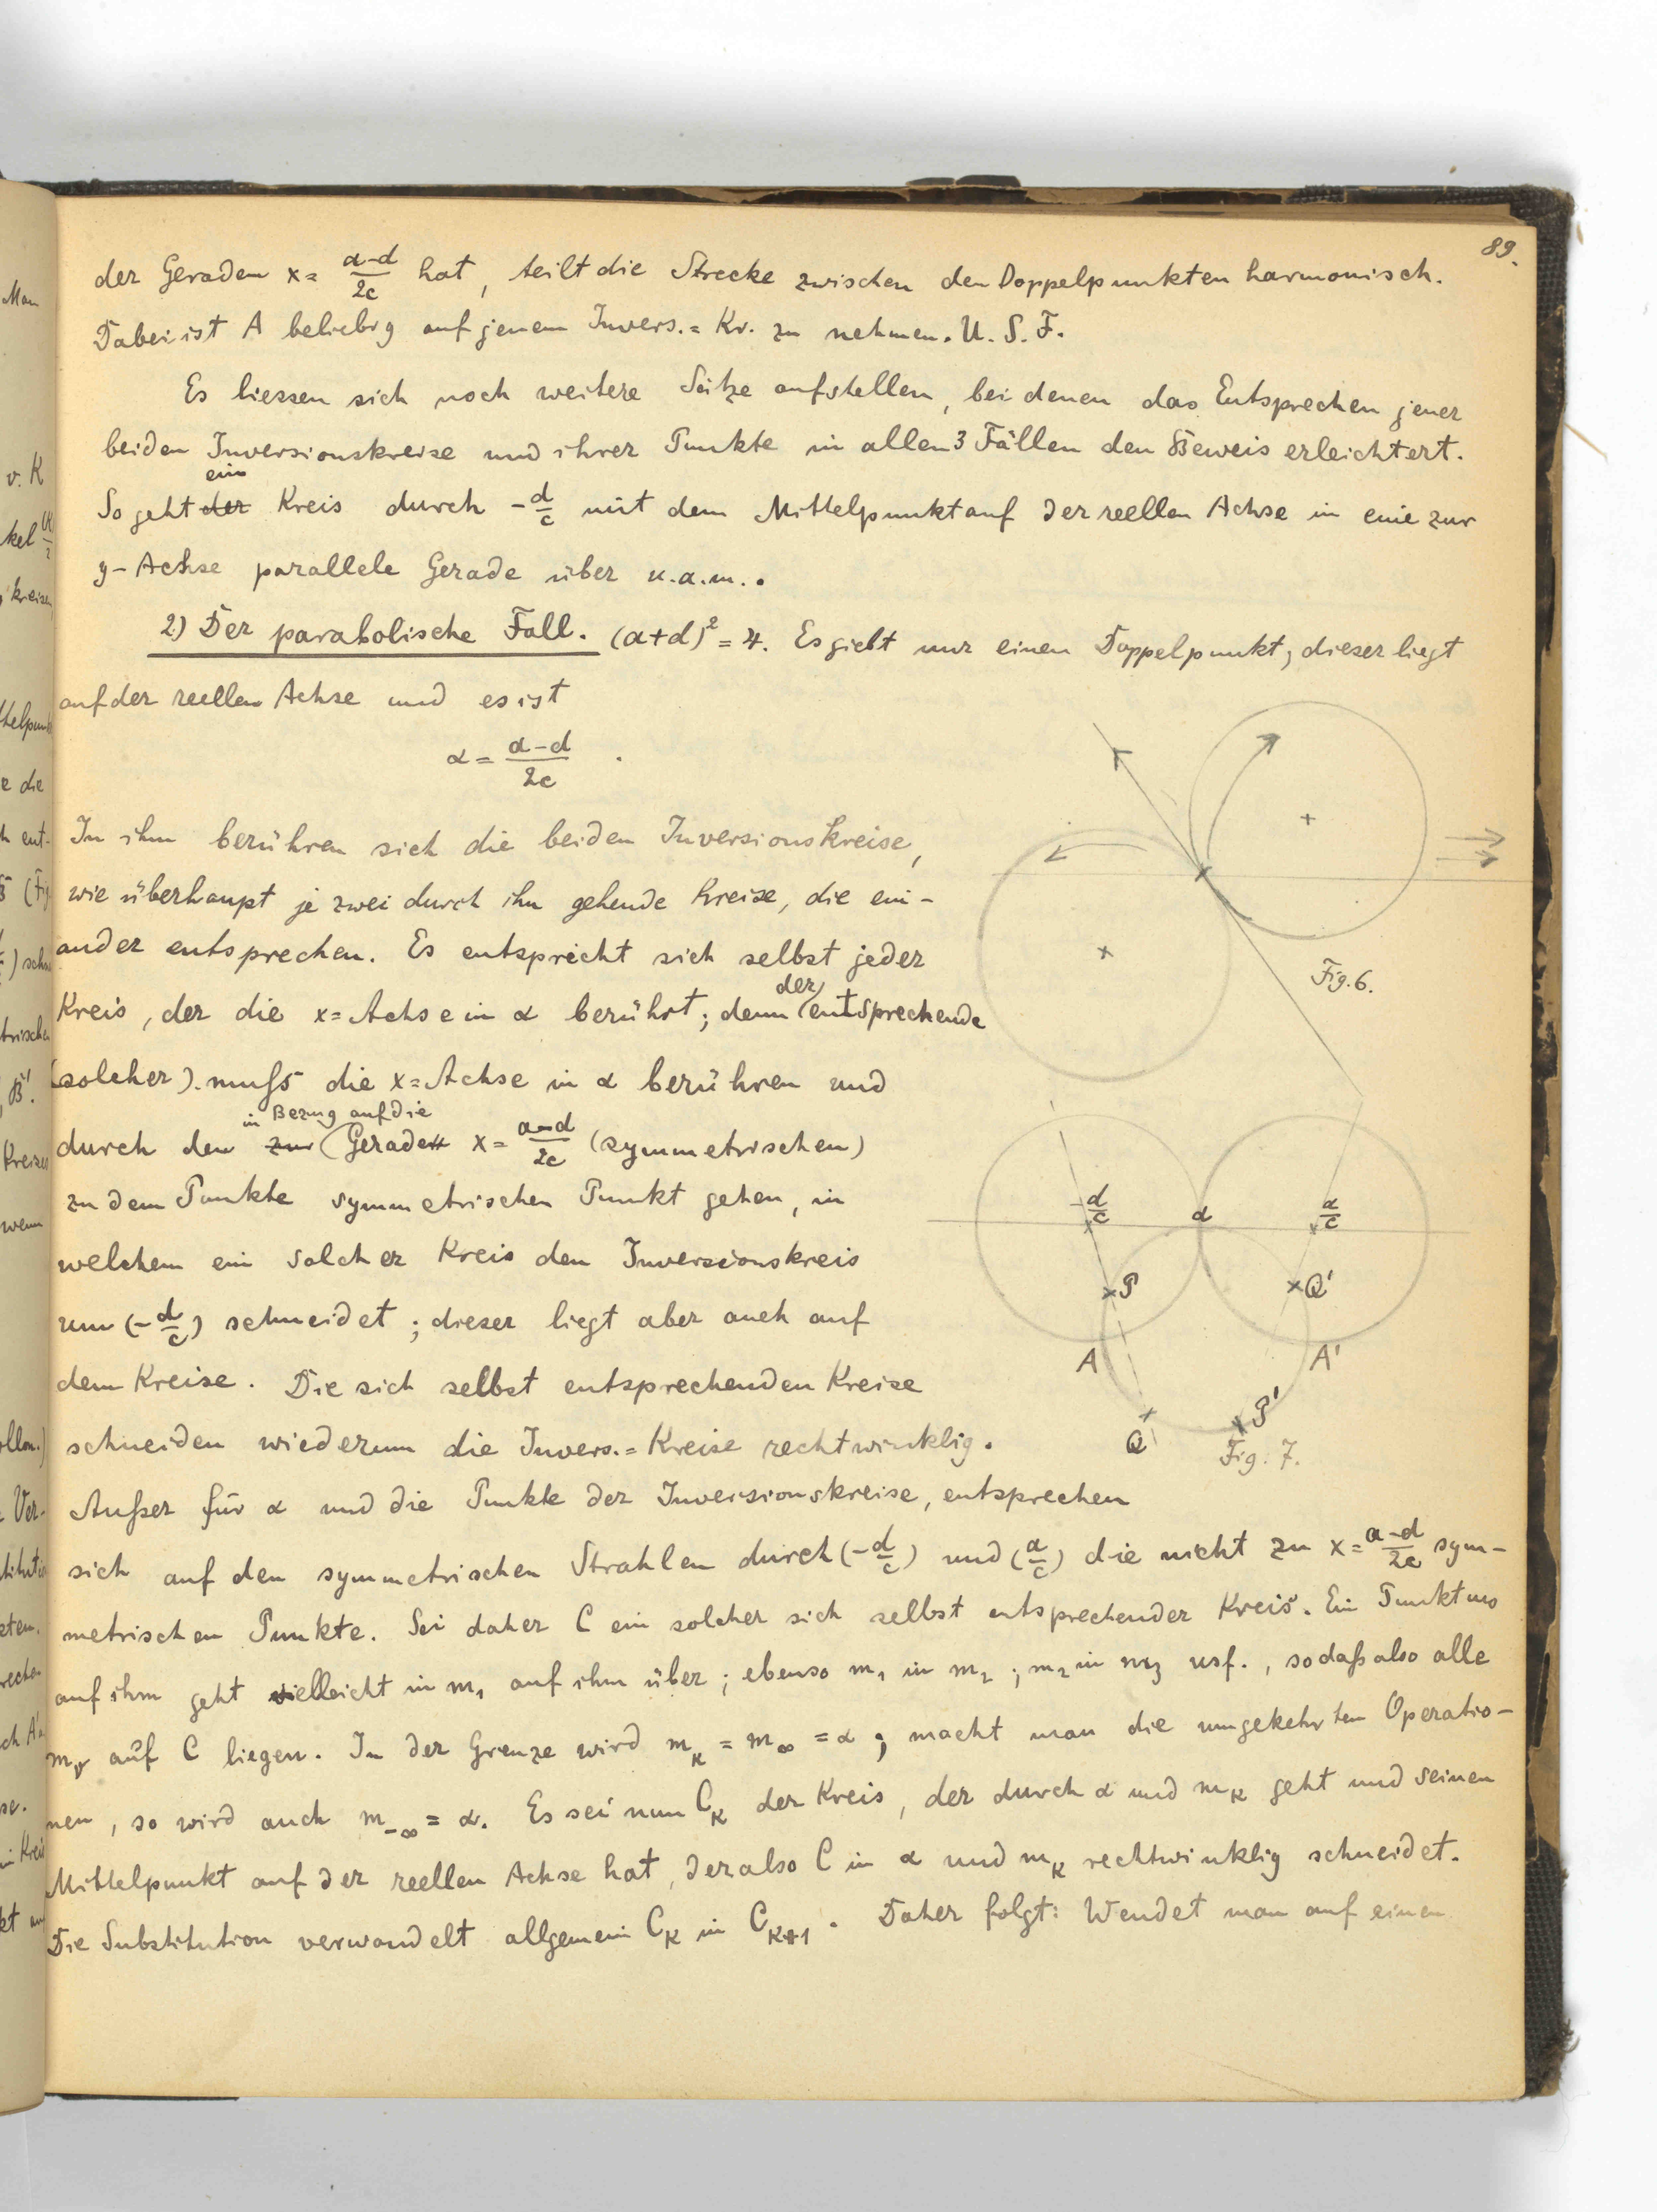 89.
der Geraden x = (a-d)/2c hat, teilt die Strecke zwischen den Doppelpunkten harmonisch.
Dabei ist A beliebig auf jenem Invers.=Kr. zu nehmen. U. S. F.
Es liessen sich noch weitere Sätze aufstellen, bei denen das Entsprechen jener
beiden Inversionskreise und ihrer Punkte in allen 3 Fällen den Beweis erleichtert.
ein
So geht der Kreis durch -d/c mit dem Mittelpunkt auf der reellen Achse in eine zur
y-Achse parallele Gerade über u.a.m..
2) Der parabolische Fall. (a+d)² = 4. Es giebt nur einen Doppelpunkt, dieser liegt
auf der reellen Achse und es ist
α = (a-d)/2c .
In ihm berühren sich die beiden Inversionskreise,
wie überhaupt je zwei durch ihn gehende Kreise, die ein-
ander entsprechen. Es entspricht sich selbst jeder
der
Kreis, der die x=Achse in α berührt; denn (entsprechende
(solcher). muß die x=Achse in α berühren und
in Bezug auf die
durch den zur (Geraden x = (a-d)/2c (symmetrischen)
zu dem Punkte symmetrischen Punkt gehen, in
welchem ein solcher Kreis den Inversionskreis
um (-d/c) schneidet; dieser liegt aber auch auf
dem Kreise. Die sich selbst entsprechenden Kreise
schneiden wiederum die Invers.=Kreise rechtwinklig.
Außer für α und die Punkte der Inversionskreise, entsprechen
sich auf den symmetrischen Strahlen durch (-d/c) und (a/c) die nicht zu x = (a-d)/2c sym-
metrischen Punkte. Sei daher C ein solcher sich selbst entsprechender Kreis. Ein Punkt m₀
auf ihm geht vielleicht in m₁ auf ihm über; ebenso m₁ in m₂; m₂ in m₃ usf., sodaß also alle
mᵥ auf C liegen. In der Grenze wird m_κ = m_∞ = α; macht man die umgekehrten Operatio-
nen, so wird auch m_-∞ = α. Es sei nun C_κ der Kreis, der durch α und m_κ geht und seinen
Mittelpunkt auf der reellen Achse hat, der also C in α und m_κ rechtwinklig schneidet.
Die Substitution verwandelt allgemein C_κ in C_κ+1. Daher folgt: Wendet man auf einen
Fig. 6.
-d/c α a/c
P Q'
A A'
Q P'
Fig. 7.